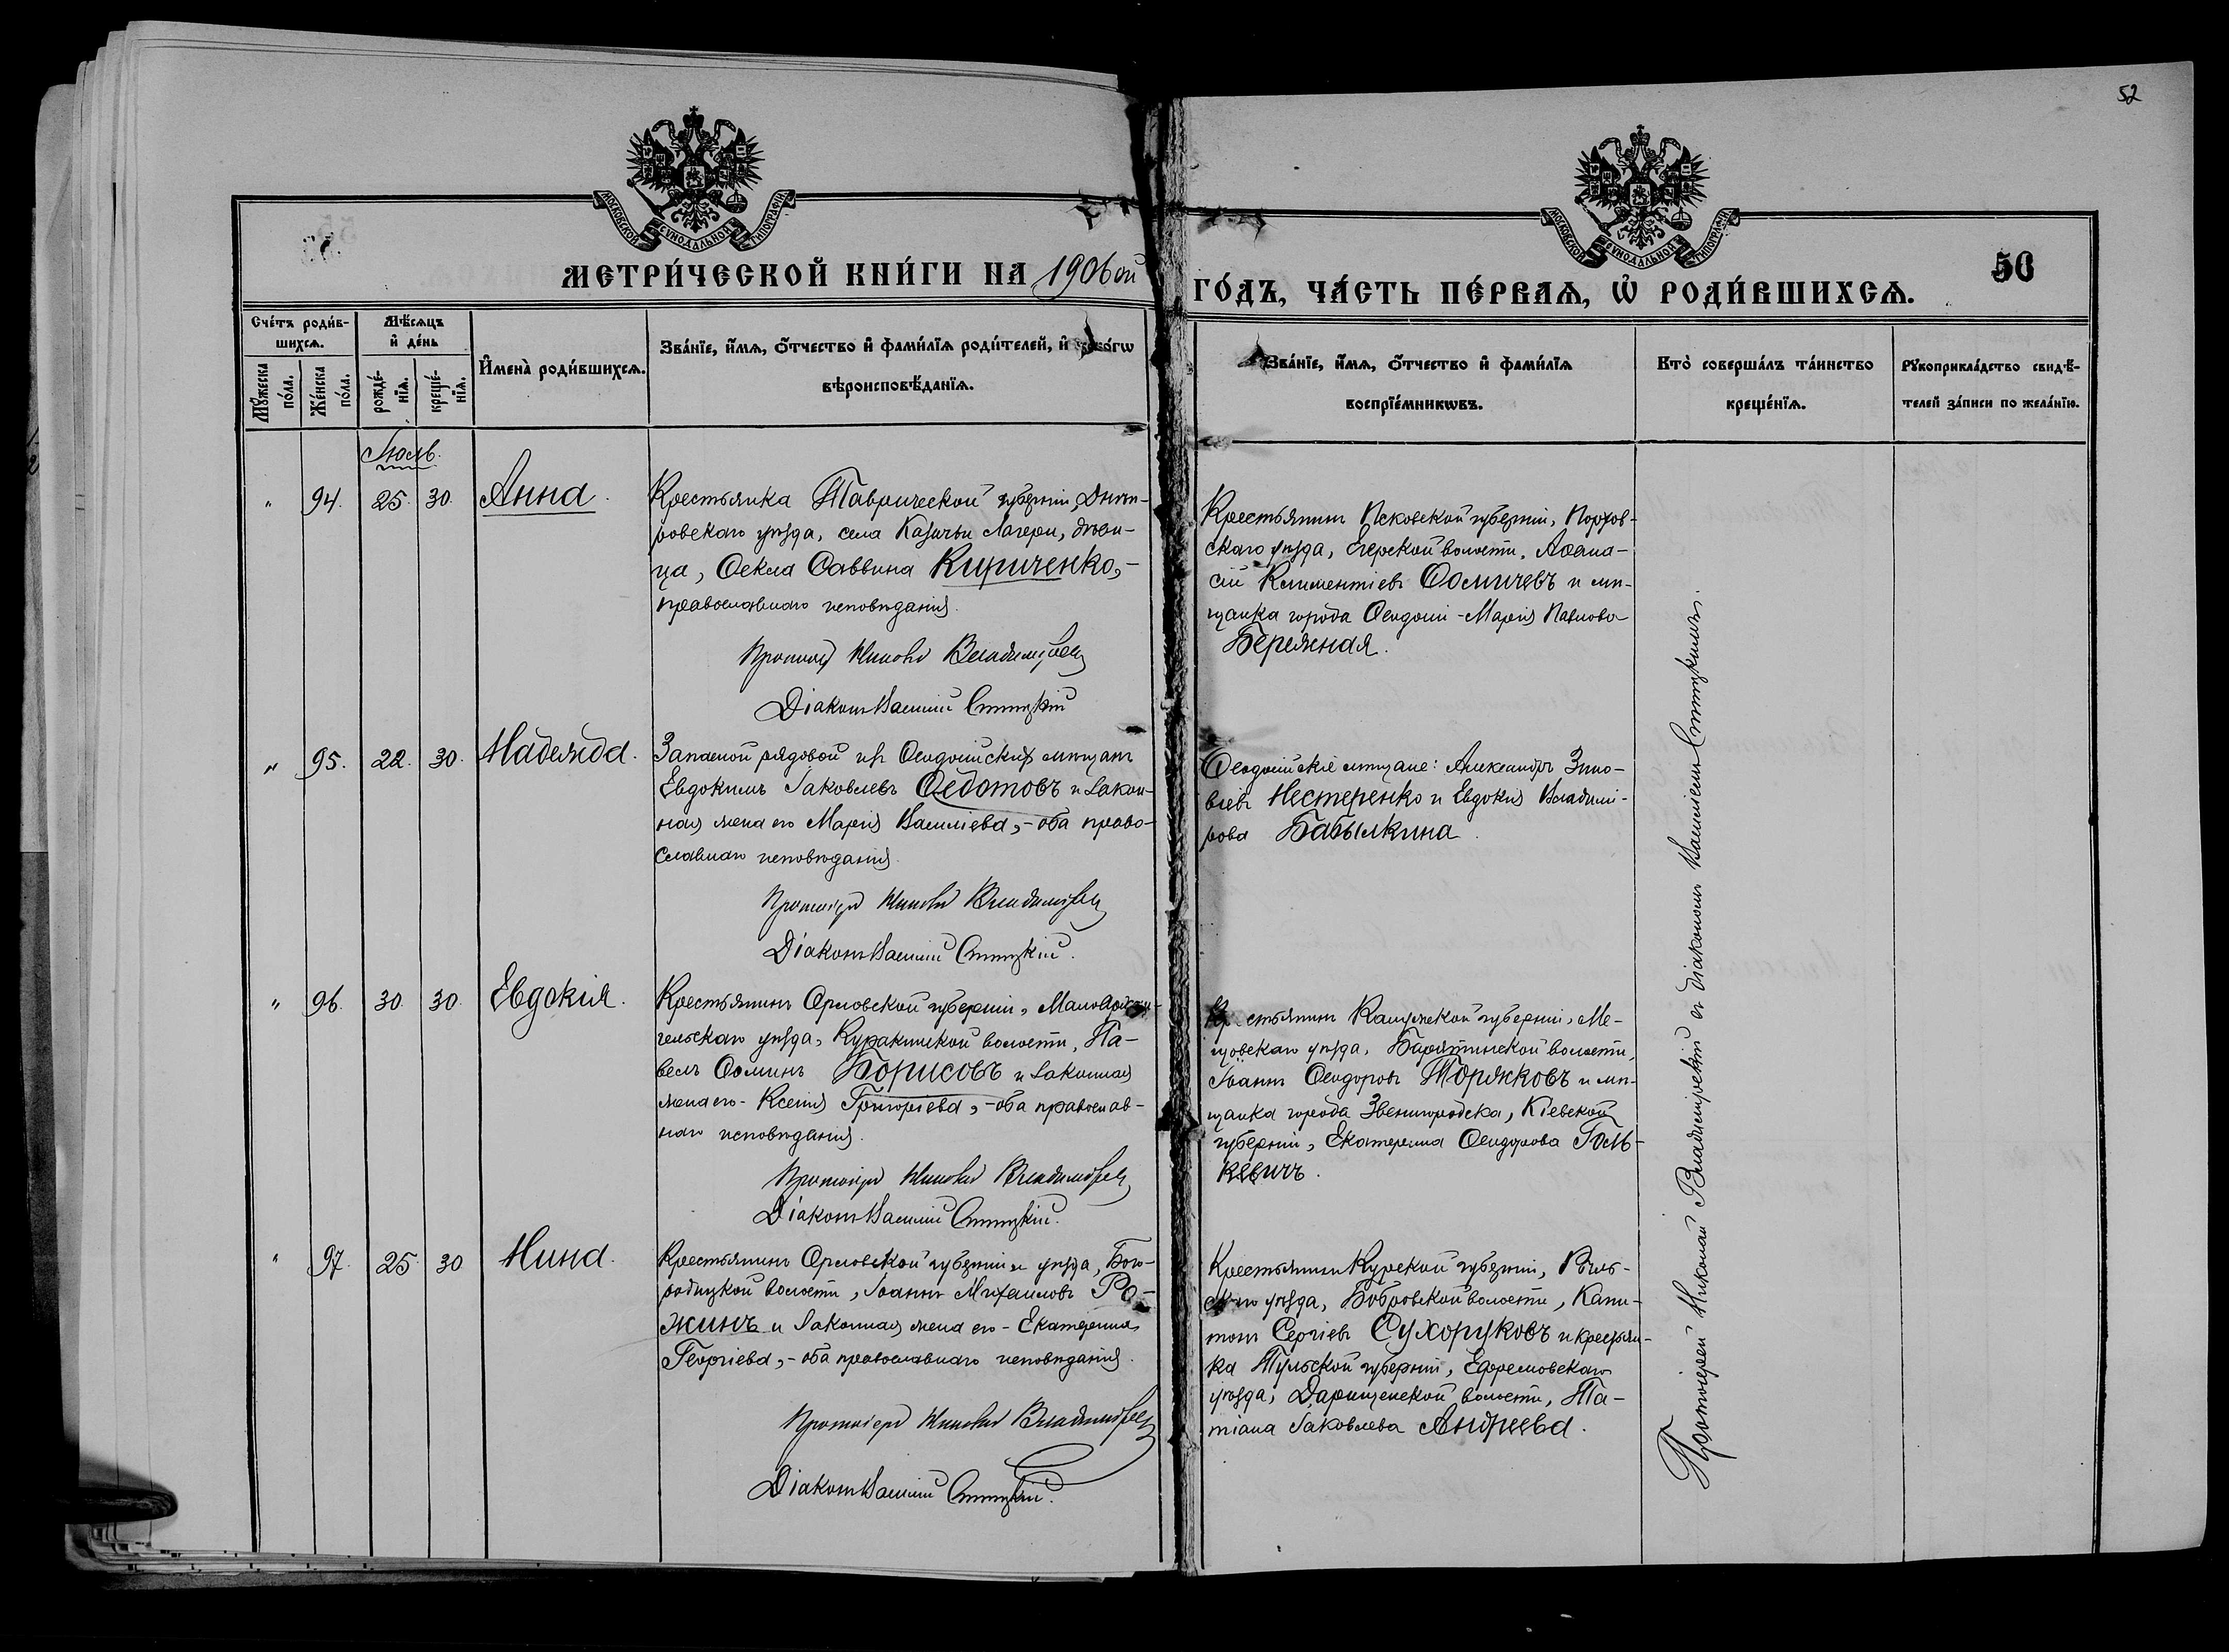 52
МОСКОВСКОЙ СѴНОДАЛЬНОЙ ТИПОГРАФІИ
МОСКОВСКОЙ СѴНОДАЛЬНОЙ ТИПОГРАФІИ
МЕТРИ́ЧЕСКОЙ КНИ́ГИ НА 1906 ой
ГО́ДЪ, ЧА́СТЬ ПЕ́РВАѦ, Ѡ҆ РОДИ́ВШИХСѦ.
50
Сче́тъ роди́в-
шихсѧ.
Мꙋ́жеска
по́ла.
Же́нска
по́ла.
Мѣ́сѧцъ
и҆ де́нь
рожде́-
нїѧ.
креще́-
нїѧ.
И҆мена̀ роди́вшихсѧ.
Зва́нїе, и҆́мѧ, ѻ҆́тчество и҆ фами́лїѧ роди́телей, и҆
вѣроисповѣ́данїѧ.
Зва́нїе, и҆́мѧ, ѻ҆́тчество и҆ фами́лїѧ
воспрїе́мникѡвъ.
Кто̀ соверша́лъ та́инство
креще́нїѧ.
Рꙋкоприкла́дство свидѣ́-
телей за́писи по жела́нїю.
Іюль.
" 94. 25. 30. Анна.
Крестьянка Таврической губерніи, Днѣп-
ровскаго уѣзда, села Казачьи Лагери, дѣви-
ца, Ѳекла Саввина Кириченко,-
православнаго исповѣданія.
Протоіерей Николай Владимірскій
Діаконъ Василій
Крестьянинъ Псковской губерніи, Порхов-
скаго уѣзда, волости, Аѳана-
сій Климентіевъ Ѳомичевъ и мѣ-
щанка города Ѳеодосіи - Марія Павлова
Бережная.
" 95. 22. 30. Надежда.
Запасной рядовой изъ Ѳеодосійскихъ мѣщанъ
Евдокимъ Іаковлевъ Ѳедотовъ и закон-
ная жена его Марія Василіева,- оба право-
славнаго исповѣданія.
Протоіерей Николай Владимірскій
Діаконъ Василій
Ѳеодосійскіе мѣщане: Александръ Зино-
віевъ Нестеренко и Евдокія Владимі-
рова Бабылкина.
" 96. 30. 30. Евдокія.
Крестьянинъ Орловской губерніи, Малоархан-
гельскаго уѣзда, Куракинской волости, Па-
велъ Ѳоминъ Борисовъ и законная
жена его - Ксенія Григоріева,- оба православ-
наго исповѣданія.
Протоіерей Николай Владимірскій
Діаконъ Василій
Крестьянинъ Калужской губерніи, Ме-
щовскаго уѣзда, Барятинской волости,
Іоаннъ Ѳеодоровъ Торжковъ и мѣ-
щанка города Звенигородска, Кіевской
губерніи, Екатерина ѲеодороваГоль-
кевичъ.
" 97. 25. 30 Нина.
Крестьянинъ Орловской губерніи и уѣзда, Бого-
родицкой волости, Іоаннъ Михаиловъ Ро-
жинъ и законная жена его - Екатерина
Георгіева,- оба православнаго исповѣданія.
Протоіерей Николай Владимірскій
Діаконъ Василій
Крестьянинъ Курской губерніи, Рыль-
скаго уѣзда, Бобровской волости, Капи-
тонъ Сергіевъ Сухоруковъ и крестьян-
ка Тульской губерніи, Ефремовскаго
уѣзда, Дарищенской волости, Та-
тіана Іаковлева Андреева.
Протоіерей Николай Владимірскій съ діакономъ Василіемъ